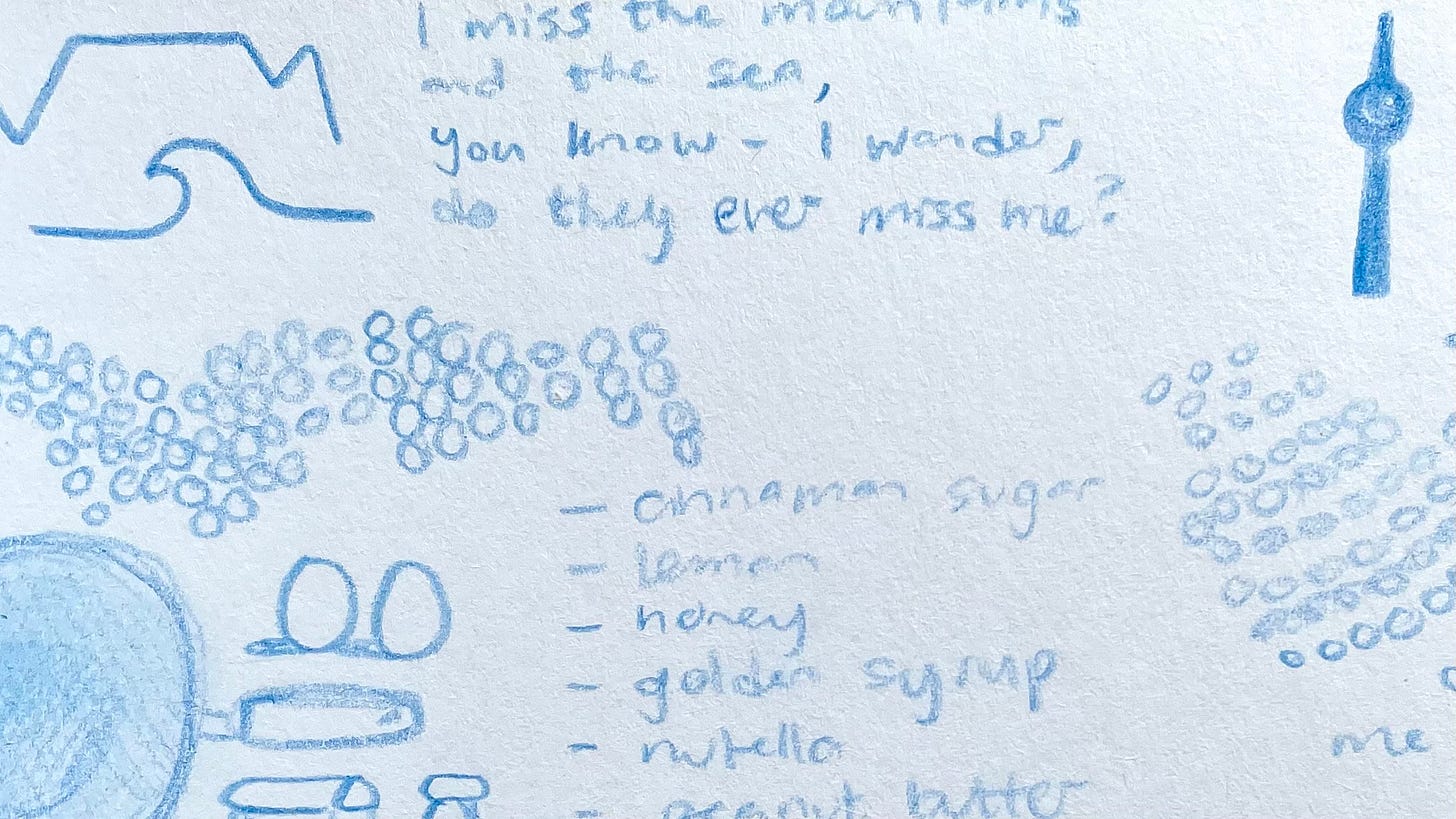 I miss the mountains
and the sea,
you know - I wander,
do they ever miss me?
- cinnamon sugar
- lemon
- honey
- golden syrup
- nutella
- peanut butter
me